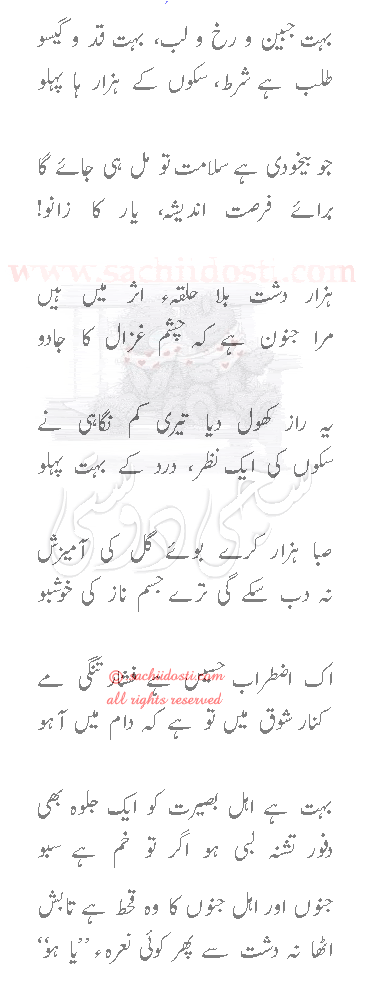 بہت جبین و رخ و لب، بہت قد و گیسو
طلب ہے شرط، سکوں کے ہزار ہا پہلو
جو بیخودی ہے سلامت تو مل ہی جائے گا
برائے فرصت اندیشہ، یار کا زانو!
www.sachiidosti.com
ہزار دشت بلا حلقہء اثر میں ہیں
مرا جنون ہے کہ چشم غزال کا جادو
یہ راز کھول دیا تیری کم نگاہی نے
سکوں کی ایک نظر، درد کے بہت پہلو
سچی دوستی
صبا ہزار کرے بوئے گل کی آمیزش
نہ دب سکے گی ترے جسم ناز کی خوشبو
اک اضطراب حسیں ہے فشار تنگی مے
@sachiidosti.com
all rights reserved
کنار شوق میں تو ہے کہ دام میں آہو
بہت ہے اہل بصیرت کو ایک جلوہ بھی
دفور تشنہ لبی ہو اگر تو خم ہے سبو
جنوں اور اہل جنوں کا وہ قحط ہے تابش
اٹھا نہ دشت سے پھر کوئی نعرہء ”یا ہو“